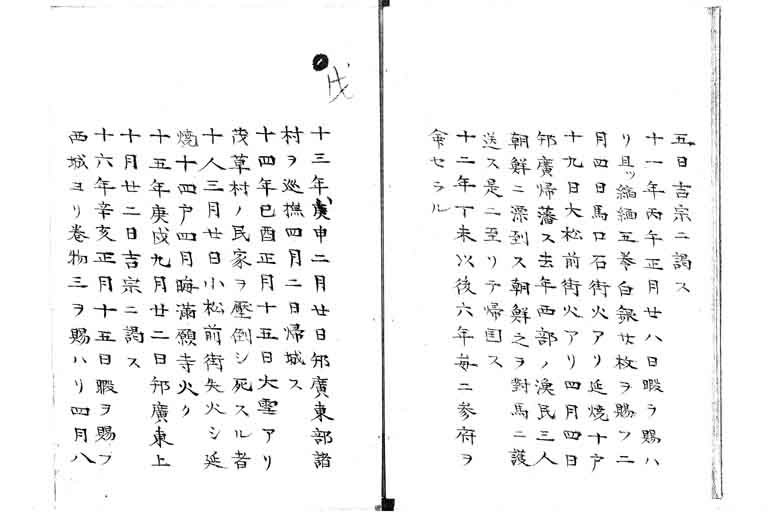 五日吉宗ニ謁ス
十一年丙午正月廿八日暇ヲ賜ハ
リ且ツ縮緬五巻白銀廿枚ヲ賜フ二
月四日馬口石街火アリ延焼十戸
十九日大松前街火アリ四月四日
邦廣帰藩ス去年西部ノ漁民三人
朝鮮ニ漂到ス朝鮮之ヲ對馬ニ護
送ス是ニ至リテ帰国ス
十二年丁未以後六年毎ニ参府ヲ
命セラル
戊
十三年申二月廿日邦廣東部諸
村ヲ巡撫四月二日帰城ス
十四年己酉正月十五日大雪アリ
茂草村ノ民家ヲ壓倒シ死スル者
十人三月廿日小松前街失火シ延
焼十四戸四月晦満願寺火ク
十五年庚戌九月廿二日邦廣東上
十月廿二日吉宗ニ謁ス
十六年辛亥正月十五日暇ヲ賜フ
西城ヨリ巻物三ヲ賜ハリ四月八